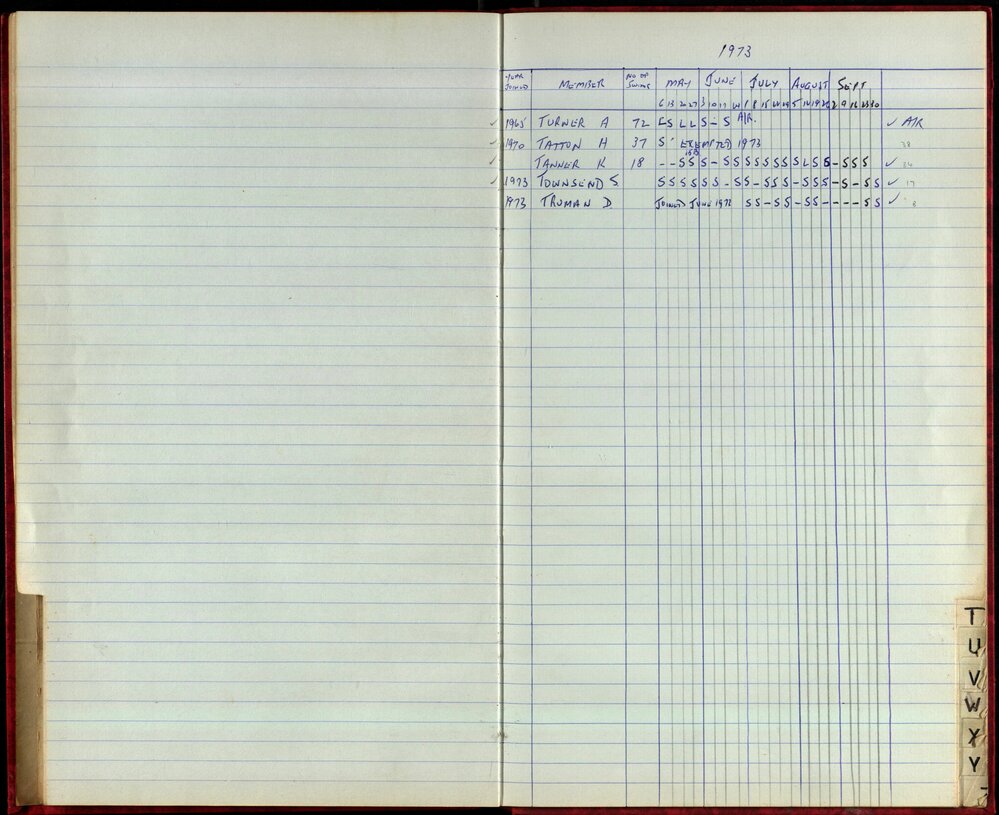 1973
YEAR JOINED MEMBER NO OF SWIMS MAY JUNE JULY AUGUST SEPT
6 13 20 27 3 10 17 24 1 8 15 22 29 5 12 19 26 2 9 16 23 30
✓ 1965 TURNER A 72 L S L L S - S A/R. ✓ A/R
✓ 1970 TATTON H 37 S EXEMPTED 1973 38
✓ TANNER K 18 - - S S S - S S S S S S S S L S S - S S S ✓
✓ 1973 TOWNSEND S S S S S S S - S S - S S S - S S S - S - S S ✓ 17
1973 TRUMAN D JOINED JUNE 1972 S S - S S - S S - - - - S S ✓ 8
T
U
V
W
X
Y